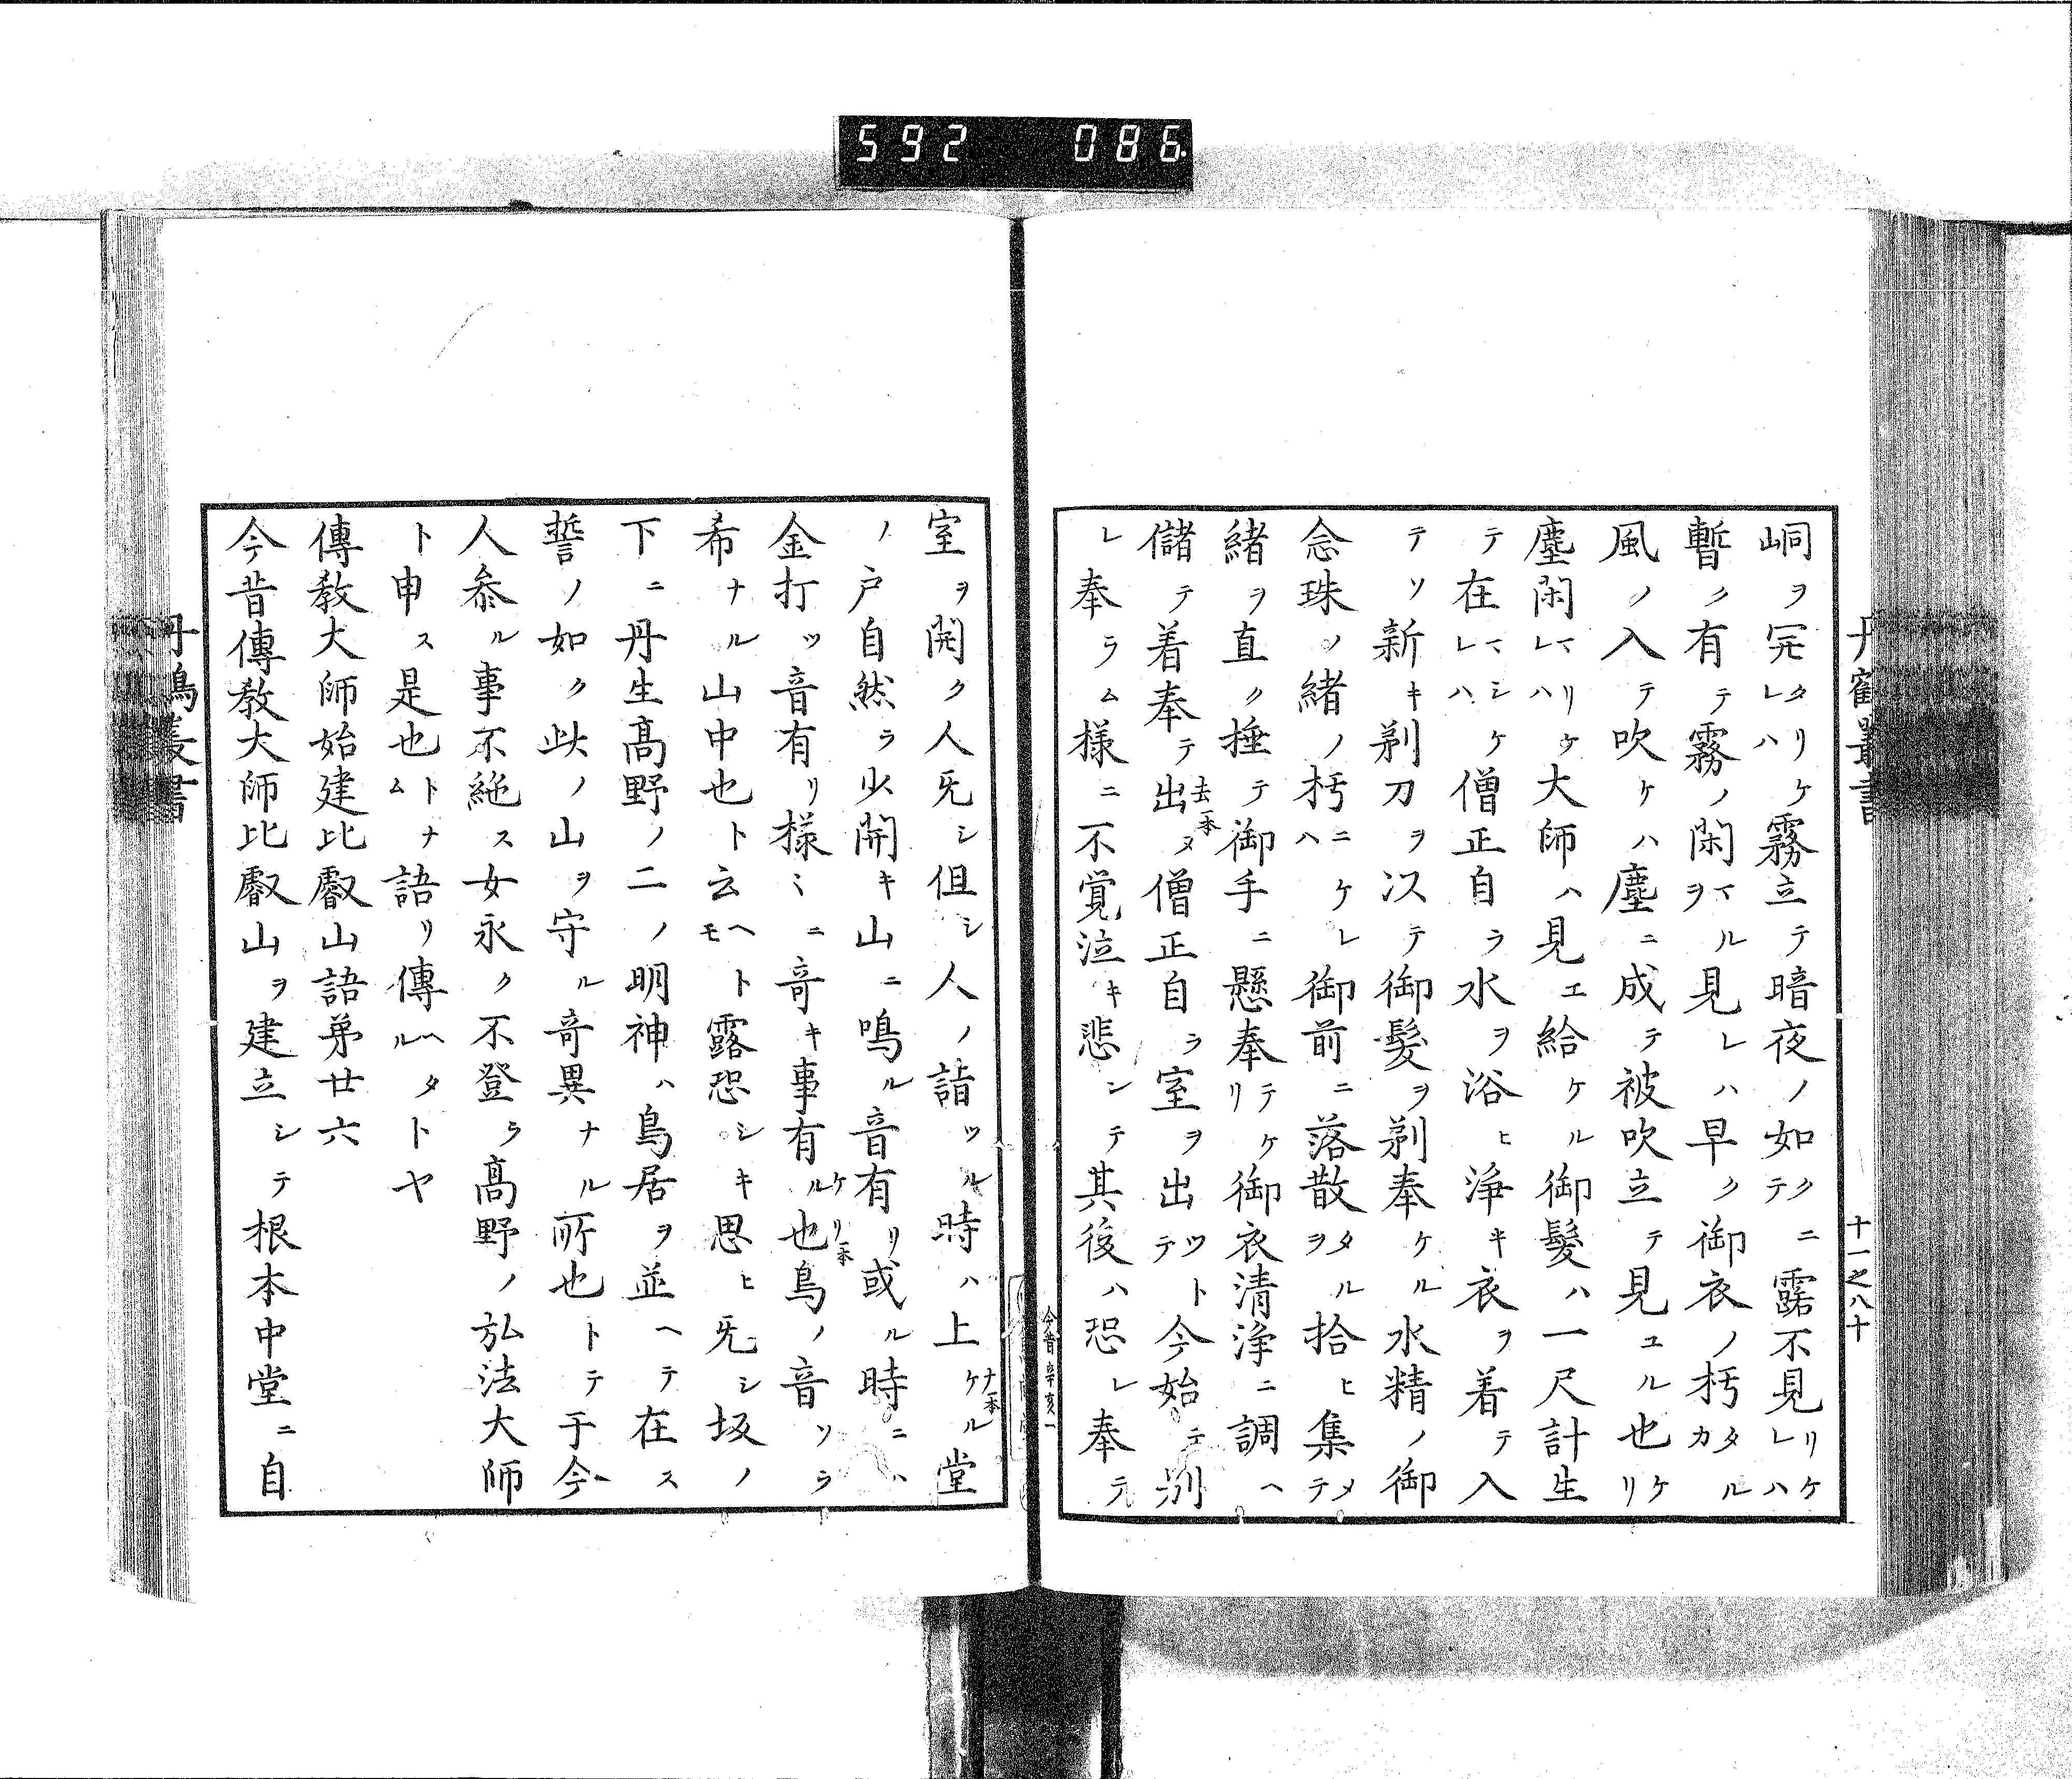 592 086
丹鶴叢書
十一之八十
峒ヲ完タリケレハ霧立テ暗夜ノ如クニテ露不見リケレハ
暫ク有テ霧ノ閑マルヲ見レハ早ク御衣ノ朽タルカ
風ノ入テ吹ケハ塵ニ成テ被吹立テ見ユル也ケリ
塵閑マリケレハ大師ハ見エ給ケル御髪ハ一尺計生
テ在マシケレハ僧正自ラ水ヲ浴ヒ浄キ衣ヲ着テ入
テソ新キ剃刀ヲ以テ御髪ヲ剃奉ケル水精ノ御
念珠ノ緒ノ朽ニケレハ御前ニ落散タルヲ拾ヒ集メテ
緒ヲ直ク捶テ御手ニ懸奉テケリ御衣清浄ニ調ヘ
儲テ着奉テ出ヌ去一本僧正自ラ室ヲ出ツトテ今始テ別
レ奉ラム様ニ不覚泣キ悲シテ其後ハ恐レ奉テ
今昔 辛亥一
室ヲ開ク人旡シ但シ人ノ詣ツル時ハ上ケルナ一本堂
ノ戸自然ラ少開キ山ニ鳴ル音有リ或ル時ニハ
金打ツ音有リ様〻ニ奇キ事有ルケリ一本也鳥ノ音ソラ
希ナル山中也ト云ヘトモ露恐シキ思ヒ旡シ坂ノ
下ニ丹生高野ノ二ノ明神ハ鳥居ヲ並ヘテ在ス
誓ノ如ク此ノ山ヲ守ル奇異ナル所也トテ于今
人参ル事不絶ス女永ク不登ラ高野ノ弘法大師
ト申ス是也トナム語リ傳ヘタルトヤ
傳教大師始建比叡山語弟廿六
今昔傳教大師比叡山ヲ建立シテ根本中堂ニ自
丹鶴叢書